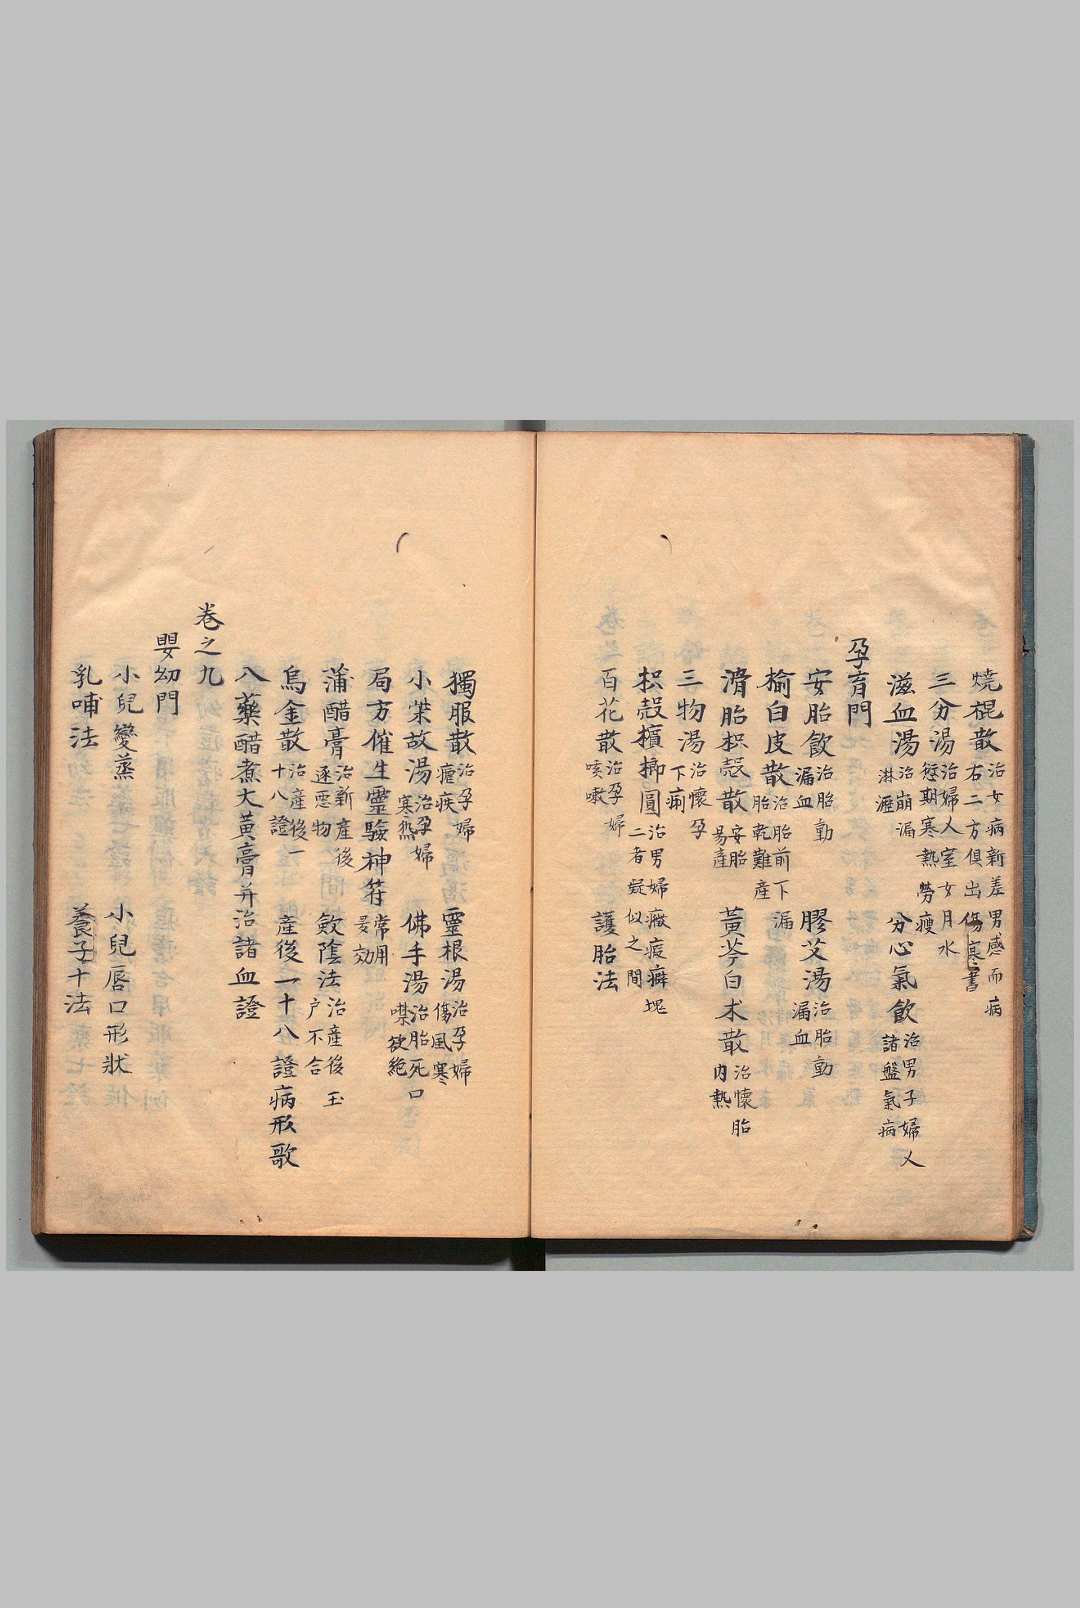 燒裩散治女病新差男感而病右二方俱出傷寒書
三分湯治婦人室女月水愆期寒熱勞瘦
滋血湯治崩漏淋瀝 分心氣飲治男子婦人諸盤氣病
孕育門
安胎飲治胎動漏血 膠艾湯治胎動漏血
榆白皮散治胎前下漏胎乾難產
滑胎枳殼散安胎易產 黃芩白朮散治懷胎內熱
三物湯治懷孕下痢
枳殼檳榔圓治男婦癥瘕癖塊二者疑似之間
百花散治孕婦咳嗽 護胎法
獨服散治孕婦瘧疾 靈根湯治孕婦傷風寒
小柴故湯治孕婦寒熱 佛手湯治胎死口噤欲絕
局方催生靈驗神符常用妥効
蒲醋膏治新產後逐惡物 斂陰法治產後玉户不合
烏金散治產後一十八證 產後一十八證病形歌
八藥醋煮大黃膏并治諸血證
卷之九
嬰幼門
小兒變蒸 小兒唇口形狀
乳哺法 養子十法